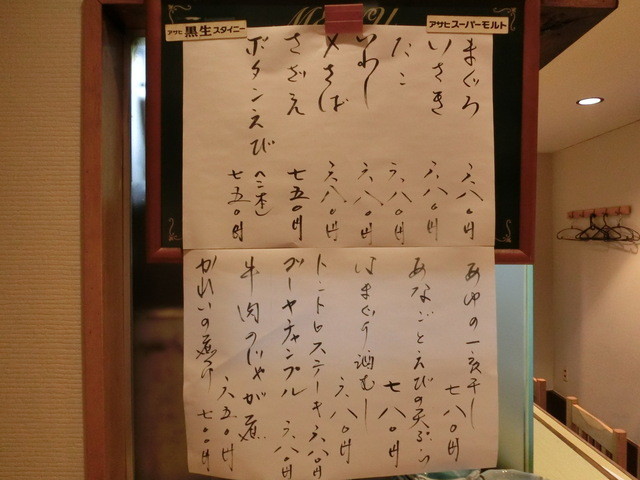 アサヒ黒生スタイニー
アサヒスーパーモルト
まぐろ 六八〇円
いさき 六八〇円
たこ 六八〇円
いわし 六八〇円
〆さば 六八〇円
さざえ 七五〇円
ボタンえび(二本) 七五〇円
あゆの一夜干し 七八〇円
あなごとえびの天ぷら 七八〇円
はまぐり酒むし 六八〇円
トントロステーキ 六八〇円
ゴーヤチャンプル 六八〇円
牛肉のじゃが煮 六五〇円
かれいの煮付 七〇〇円